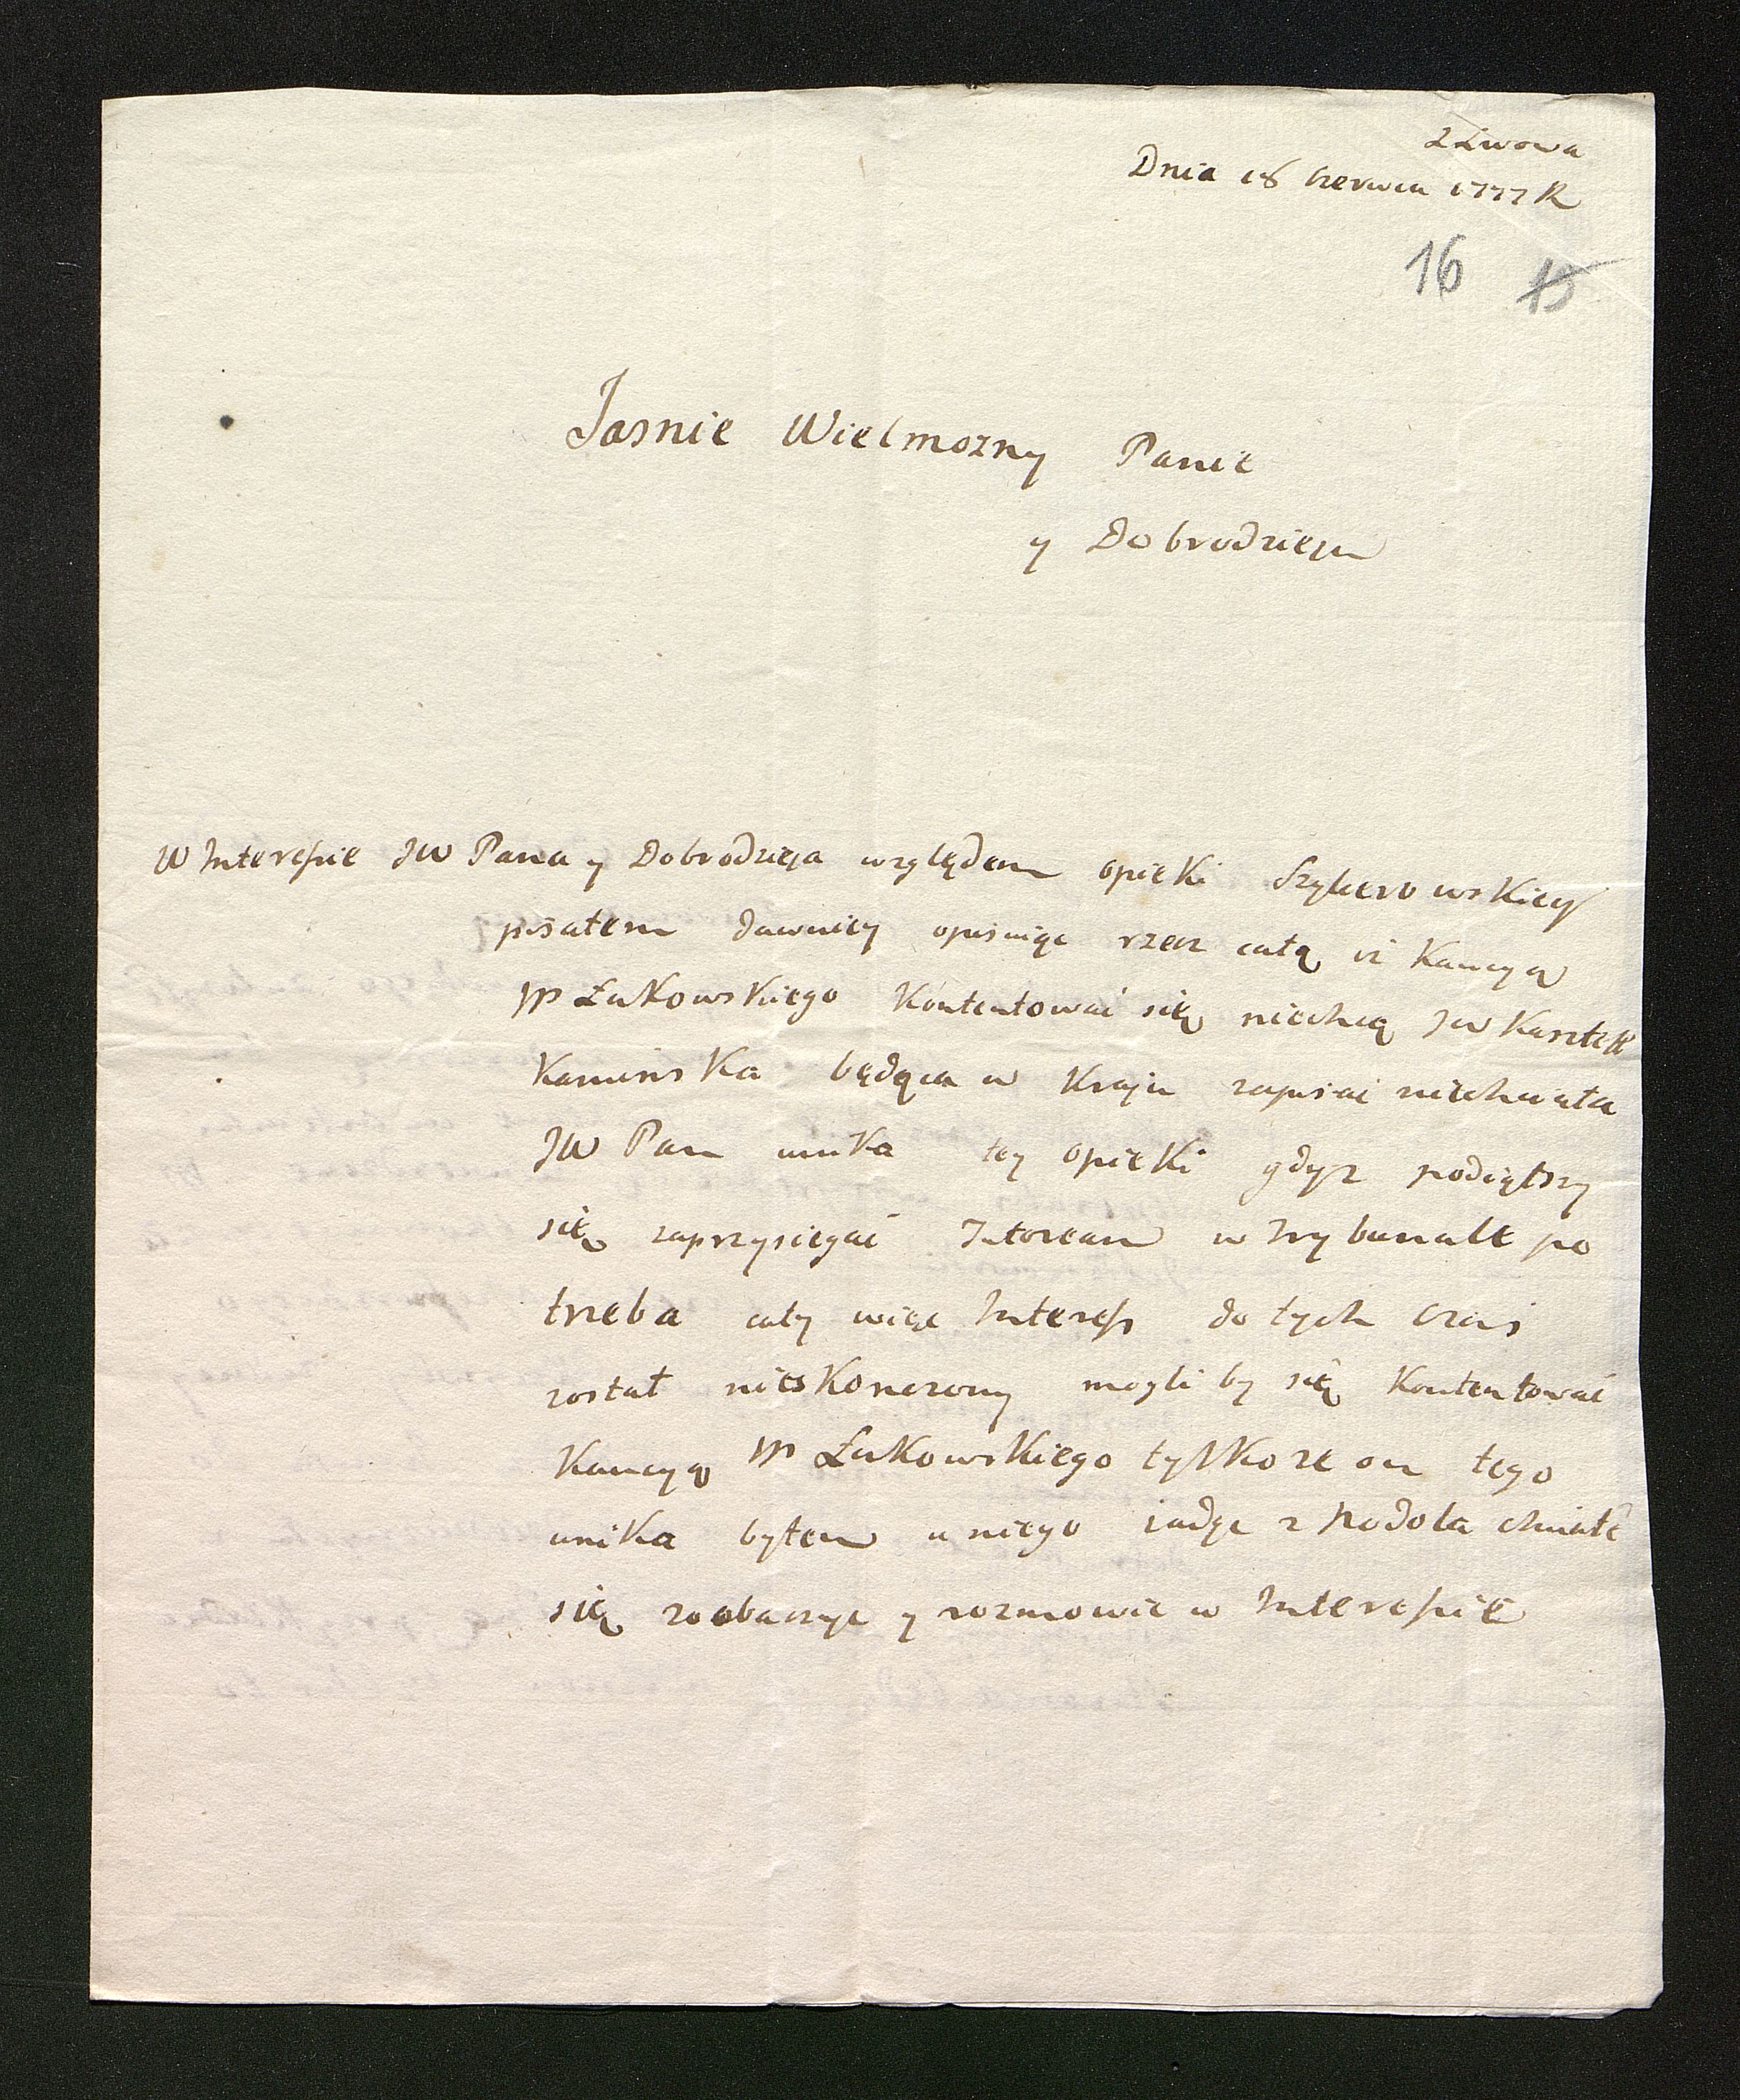 z Lwowa
Dnia 18 Czerwca 1777 R
16 15
Jasnie Wielmozny Panie
y Dobrodzieju
W Interessie JW Pana y Dobrodzieja względem opieki Szyberowskiey
pisałem dawniey opisuiąc rzecz całą iż Kaucyą
JP Łukowskiego Kontentować się niechcą JW Kasztell
Kaminska będąca w Kraju zapisać niechciała
JW Pan unika tey opieki gdyz podiąwszy
się zaprzysiegać Tutoream w Trybunale po
trzeba cały więc Interess do tych czas
został nieskonczony mogli by się Kontentować
Kaucyą JP Łukowskiego tylko ze on tego
unika byłem u niego iadąc z Podola chciałe
się zoobaczyc y rozmowic w Interessie